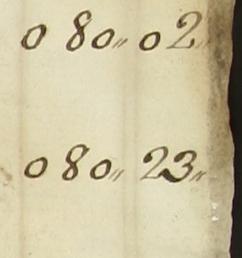 080〃 02〃
080〃 23〃